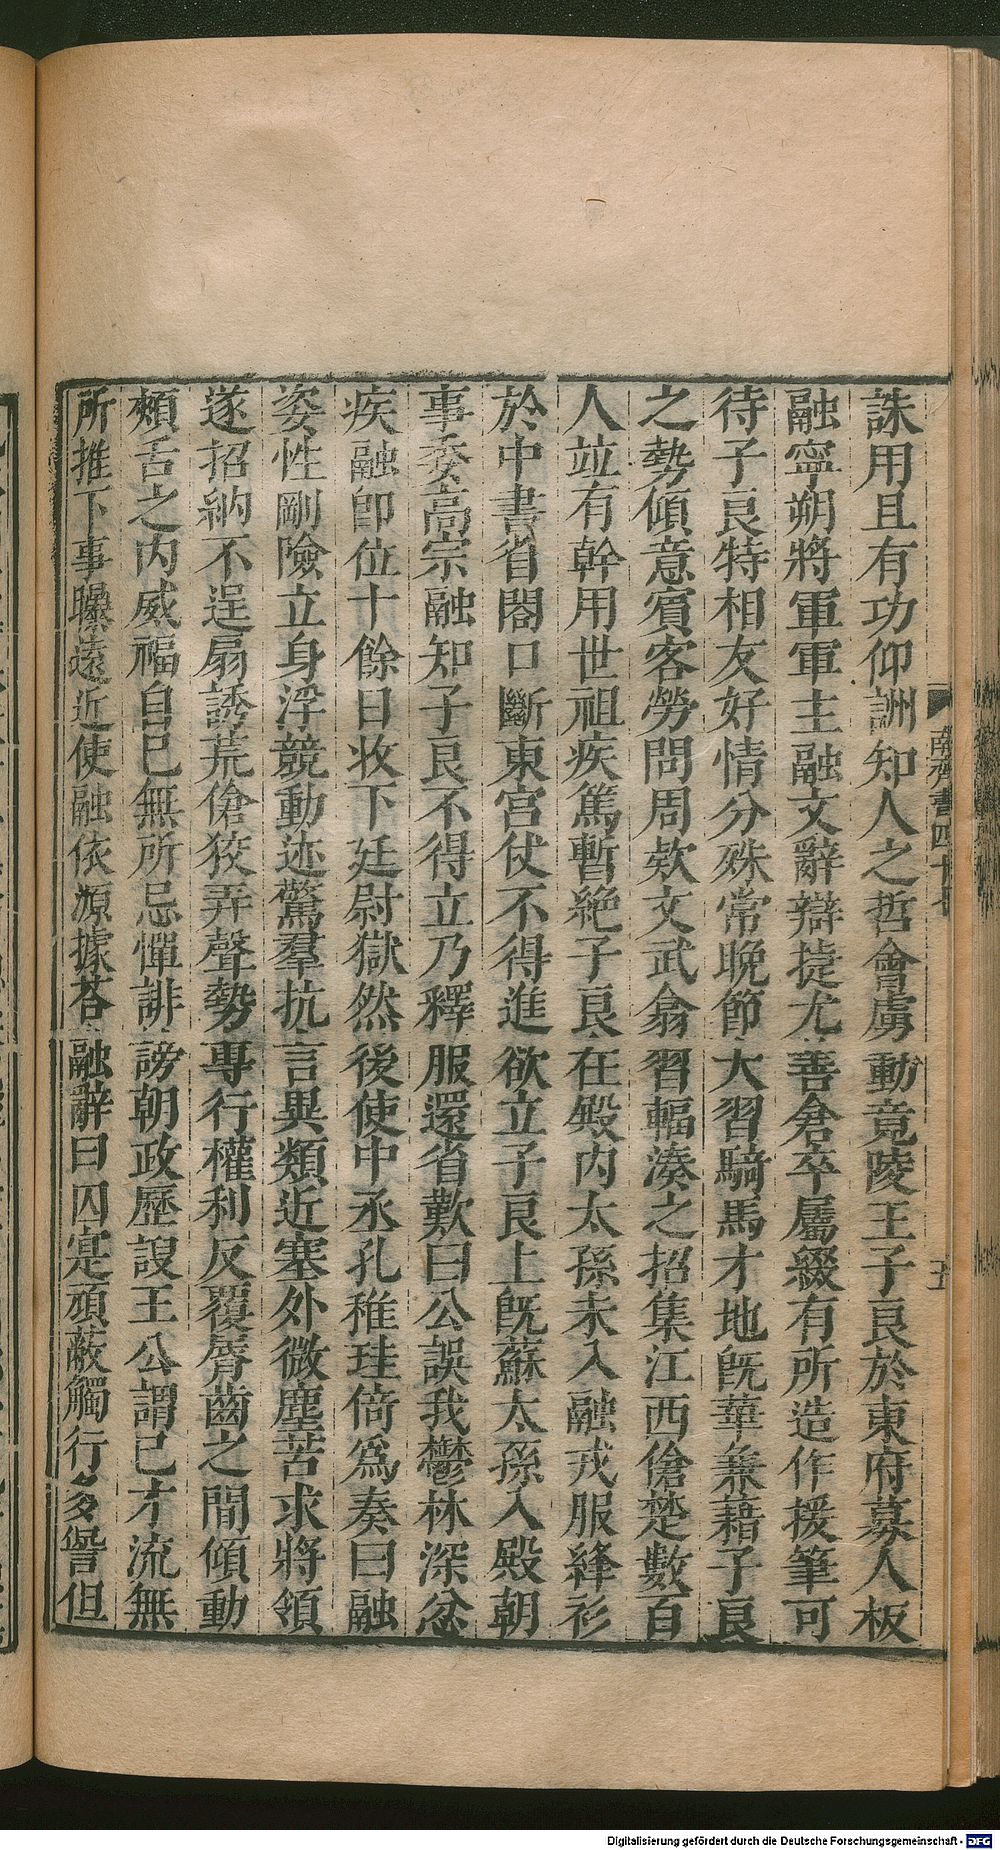 誅用且有功仰詶知人之哲會虜動竟陵王子良於東府募人板
融寧朔將軍軍主融文辭辯捷尤善倉卒屬綴有所造作援筆可
待子良特相友好情分殊常晚節大習騎馬才地旣華兼藉子良
之勢傾意賓客勞問周欵文武翕習輻湊之招集江西傖楚數百
人竝有幹用世祖疾篤暫絶子良在殿内太孫未入融戎服絳衫
於中書省閤口斷東宮仗不得進欲立子良上旣蘇太孫入殿朝
事委高宗融知子良不得立乃釋服還省歎曰公誤我鬱林深忿
疾融卽位十餘日收下廷尉獄然後使中丞孔稚珪倚爲奏曰融
姿性剛險立身浮競動迹驚羣抗言異類近塞外微塵苦求將領
遂招納不逞扇誘荒傖狡弄聲勢專行權利反覆脣齒之間傾動
頰舌之内威福自己無所忌憚誹謗朝政歷詆王公謂己才流無
所推下事曝遠近使融依源據荅融辭曰囚寔頑蔽觸行多諐但
南齊書四十七
五
Digitalisierung gefördert durch die Deutsche Forschungsgemeinschaft - DFG